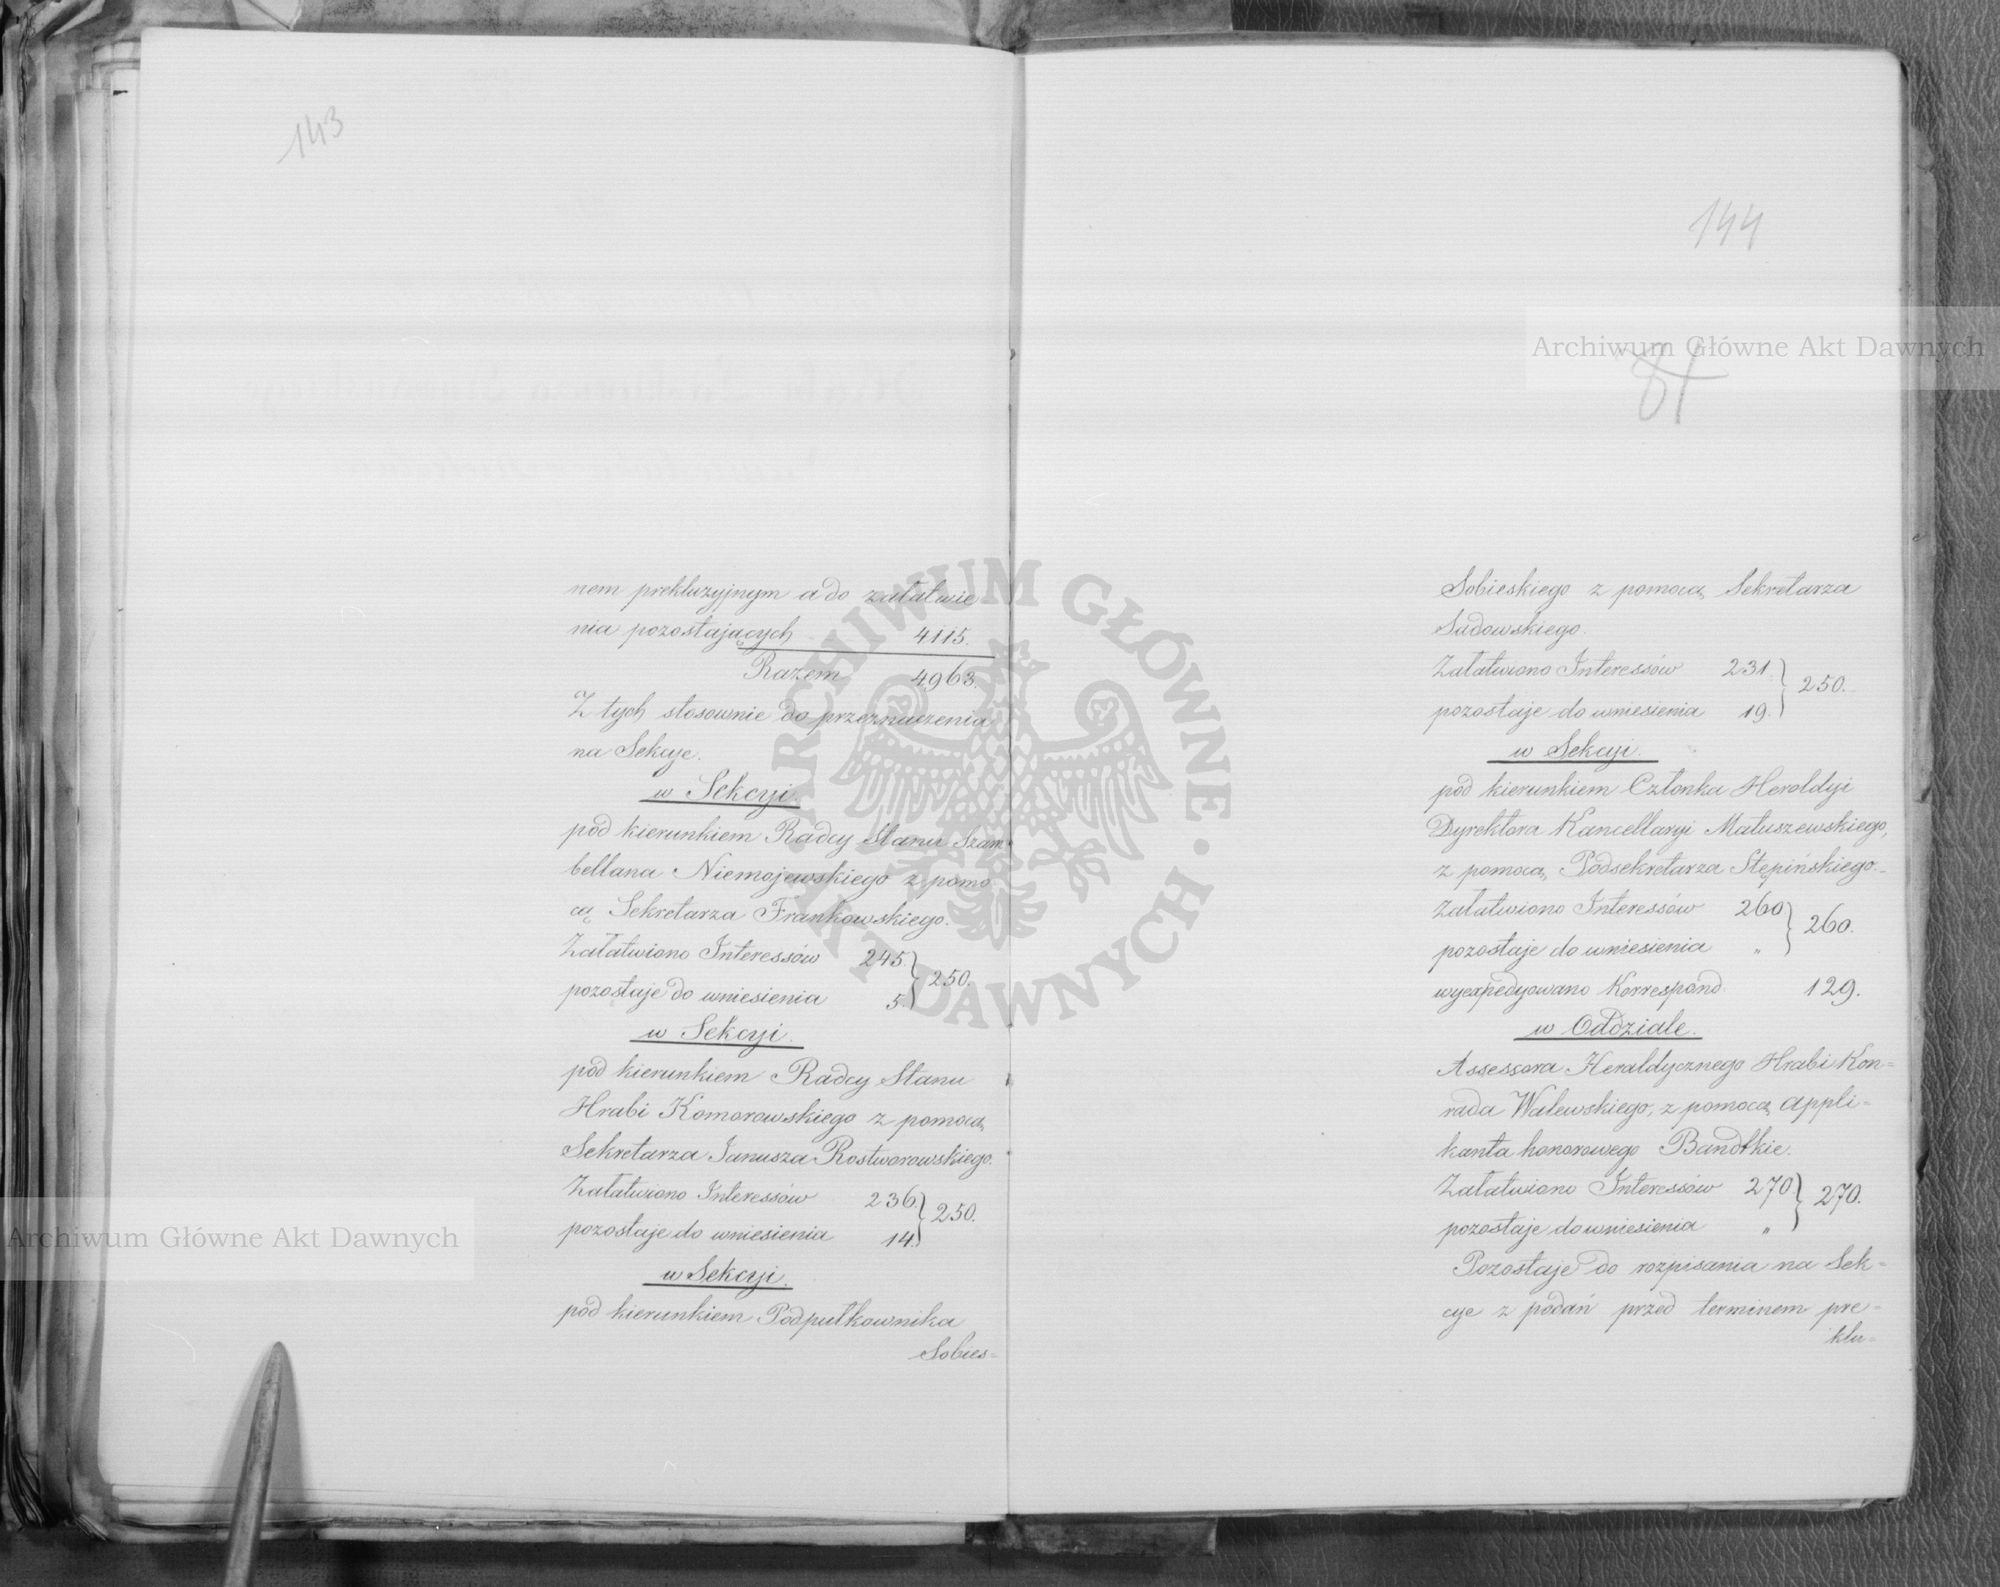 143
nem prekluzyjnym a do załatwie
nia pozostających 4115.
Razem 4963.
Z tych stosownie do przeznaczenia
na Sekcje.
w Sekcyi.
pod kierunkiem Radcy Stanu Szam
bellana Niemojewskiego z pomo
cą Sekretarza Frankowskiego.
Załatwiono Interessów 245. } 250.
pozostaje do wniesienia 5.
w Sekcyi.
pod kierunkiem Radcy Stanu
Hrabi Komorowskiego z pomocą
Sekretarza Janusza Rostworowskiego.
Załatwiono Interessów 236. } 250.
pozostaje do wniesienia 14.
w Sekcyi.
pod kierunkiem Podpułkownika
Sobies=
144
Sobieskiego z pomocą Sekretarza
Sadowskiego.
Załatwiono Interessów 231. } 250.
pozostaje do wniesienia 19.
w Sekcyi.
pod kierunkiem Członka Heroldyi
Dyrektora Kancellaryi Matuszewskiego,
z pomocą Podsekretarza Stępińskiego.
Załatwiono Interessów 260 } 260.
pozostaje do wniesienia „
wyexpedyowano Korrespond. 129.
w Oddziale.
Assessora Heraldycznego Hrabi Kon=
rada Walewskiego, z pomocą Appli=
kanta honorowego Bandtkie.
Załatwiono Interessów 270 } 270.
pozostaje do wniesienia „
Pozostaje do rozpisania na Sek=
cye z podań przed terminem pre=
klu=
Archiwum Główne Akt Dawnych
Archiwum Główne Akt Dawnych
ARCHIWUM GŁÓWNE · AKT DAWNYCH ·